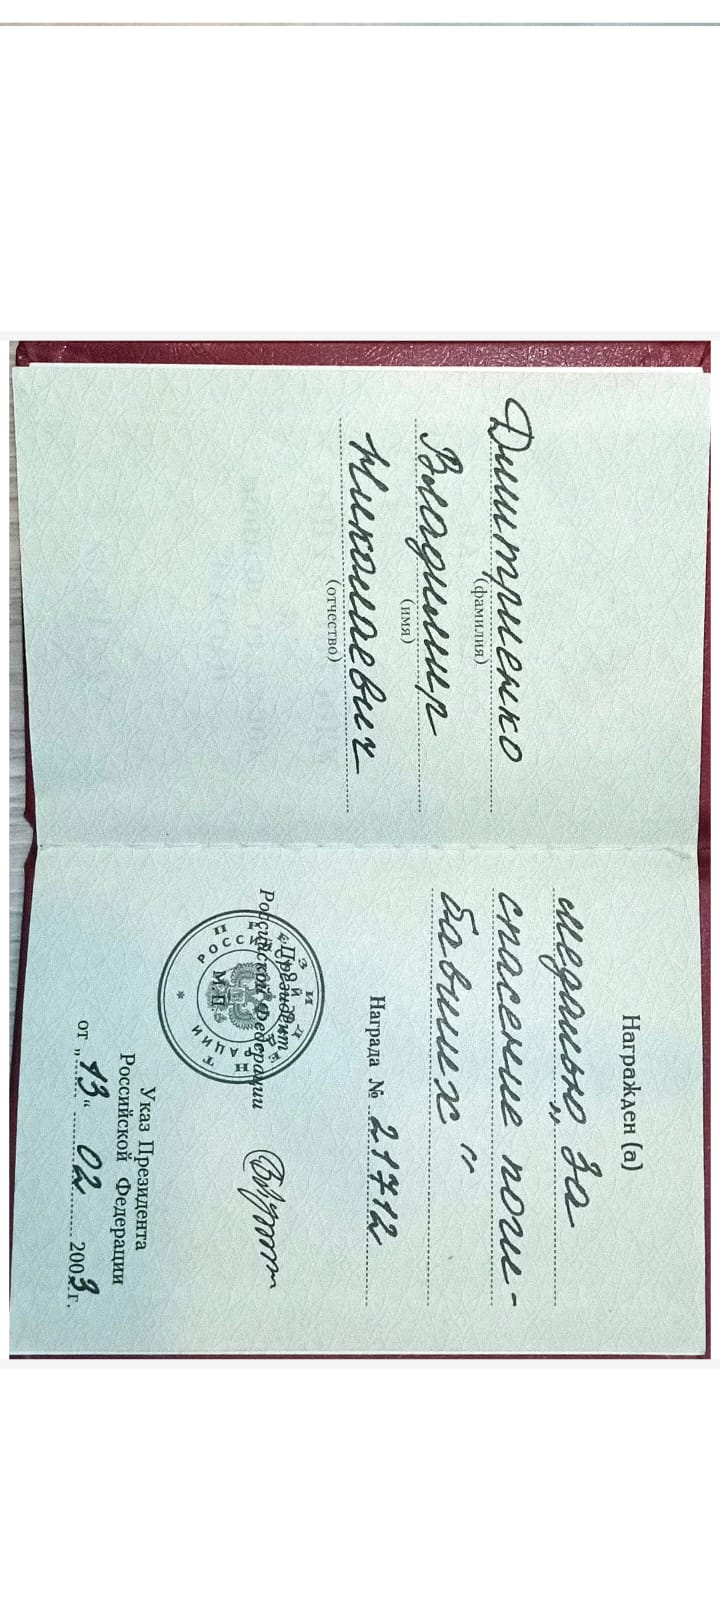 Дмитриенко
(фамилия)
Владимир
(имя)
Николаевич
(отчество)
Награжден (а)
медалью „За
спасение поги-
бавших"
Награда № 21712
Президент
Российской Федерации
ПРЕЗИДЕНТ
РОССИЙСКОЙ ФЕДЕРАЦИИ
МП
Указ Президента
Российской Федерации
от „13“ 02 2003 г.